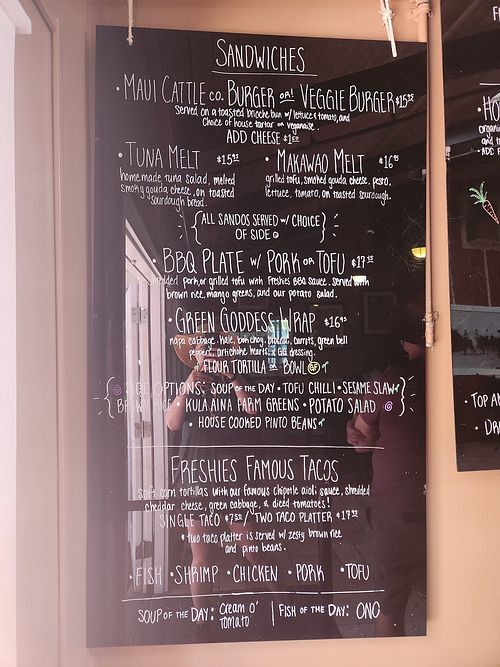 SANDWICHES
• MAUI CATTLE CO. BURGER OR! VEGGIE BURGER $15⁹⁵
Served on a toasted brioche bun w/ lettuce & tomato, and
choice of house tartar or veganaise.
ADD CHEESE
• TUNA MELT $15⁹⁵
homemade tuna salad, melted
smoky gouda cheese, on toasted
sourdough bread.
• MAKAWAO MELT $16⁹⁵
grilled tofu, smoked gouda cheese, pesto,
lettuce, tomato, on toasted sourdough.
{ALL SANDOS SERVED w/ CHOICE}
OF SIDE
• BBQ PLATE w/ PORK OR TOFU $17⁹⁵
pork, or grilled tofu with Freshies BBQ sauce. Served with
brown rice, mango greens, and our potato salad.
• GREEN GODDESS WRAP $16⁹⁵
napa cabbage, kale, bok choy, broccoli, carrots, green bell
peppers, artichoke hearts, & GG dressing.
FLOUR TORTILLA OR BOWL GF
{SIDE OPTIONS: SOUP OF THE DAY • TOFU CHILI • SESAME SLAW}
BROWN RICE • KULA AINA FARM GREENS • POTATO SALAD
• HOUSE COOKED PINTO BEANS
FRESHIES FAMOUS TACOS
Soft corn tortillas with our famous chipotle aioli sauce, shredded
cheddar cheese, green cabbage, & diced tomatoes!
SINGLE TACO $7⁵⁰ / TWO TACO PLATTER $17⁹⁵
* two taco platter is served w/ zesty brown rice
and pinto beans.
• FISH • SHRIMP • CHICKEN • PORK • TOFU
SOUP OF THE DAY: Cream O'
Tomato
FISH OF THE DAY: ONO
• HO
organi
and t
ADD
• TOP A
• DR